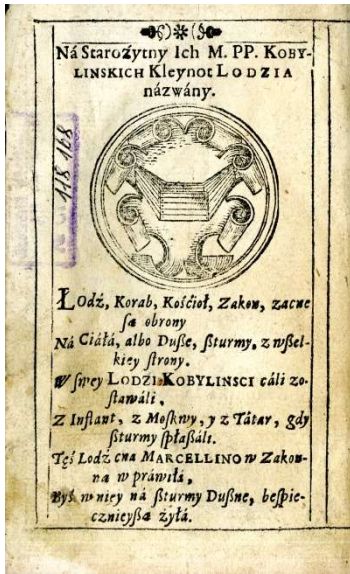 Ná Starożytny Ich M. PP. KOBY-
LINSKICH Kleynot LODZIA
názwány.
118168
Łodź, Korab, Kośćioł, Zakon, zacne
są obrony
Ná Ciáłá, albo Duße, ßturmy, z wßel-
kiey strony.
W swey LODZI KOBYLINSCI cáli zo-
stawáli,
Z Inflant, z Moskwy, y z Tátar, gdy
ßturmy spłaßáli.
Tęś Lodź cna MARCELLINO w Zakon-
na w práwiłá,
Byś w niey ná ßturmy Dußne, bespie-
cznieyßa żyłá.